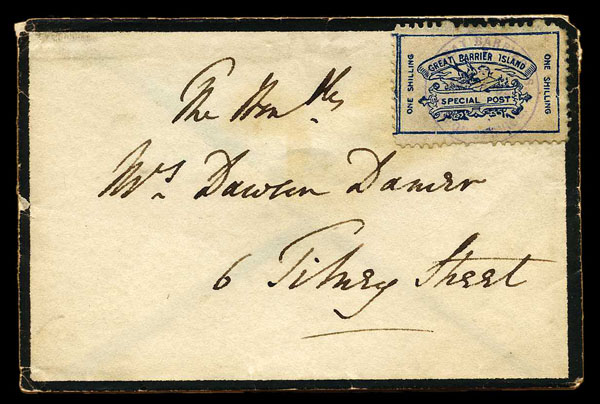 GREAT BARRIER ISLAND
ONE SHILLING
SPECIAL POST
ONE SHILLING
The Honble
Mrs Dawson Damer
6 Tilney Street